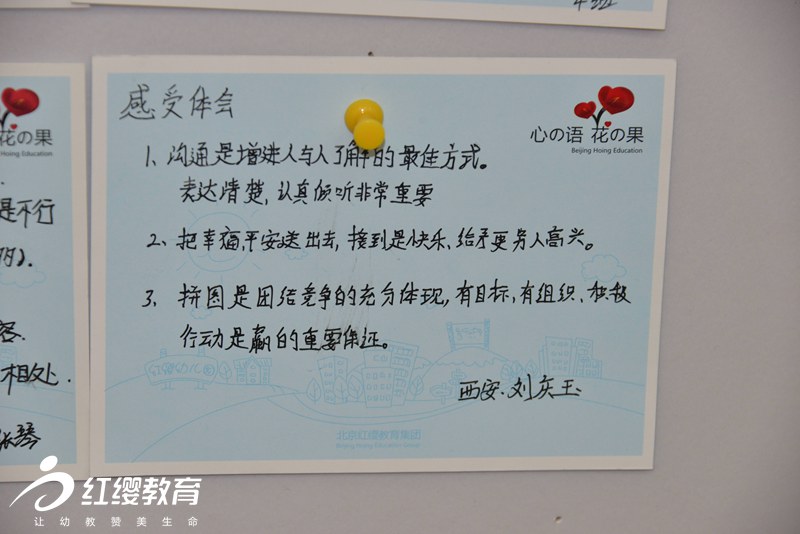 感受体会
心の语 花の果
Beijing Hoing Education
1、沟通是增进人与人了解的最佳方式。
表达清楚，认真倾听非常重要
2、把幸福平安送出去，接到是快乐、给予更另人高兴。
3、拼图是团结竞争的充分体现，有目标，有组织、积极
行动是赢的重要保证。
西安·刘庆玉
北京红缨教育集团
花の果
Hoing Education
是不行
客.
相处.
红缨教育
让幼教赞美生命